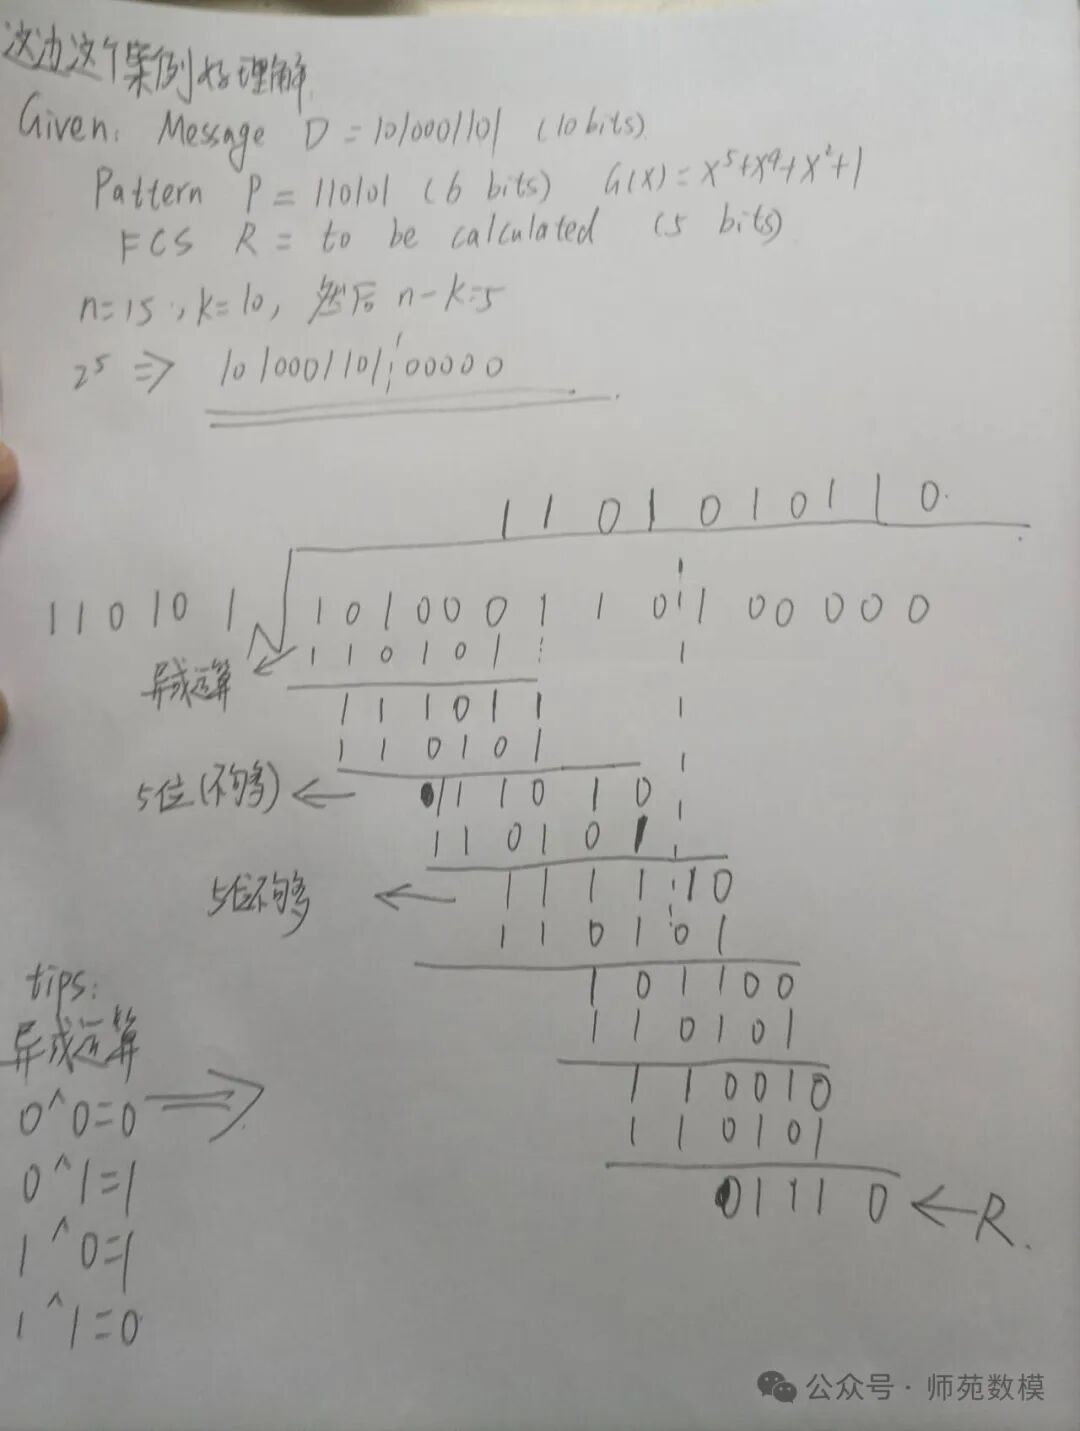 这边这个案例好理解
Given: Message D = 1010001101 (10 bits)
Pattern P = 110101 (6 bits) G(X) = X⁵+X⁴+X²+1
FCS R = to be calculated (5 bits)
n=15, k=10, 然后 n-k=5
2⁵ ⇒ 1010001101 00000
1101010110
110101 101000110100000
110101
异或运算
111011
110101
5位(不够) ← 111010
110101
5位不够 ← 111110
110101
101100
110101
110010
110101
01110 ← R.
tips:
异或运算
0^0=0 ⇒
0^1=1
1^0=1
1^1=0
公众号 · 师苑数模